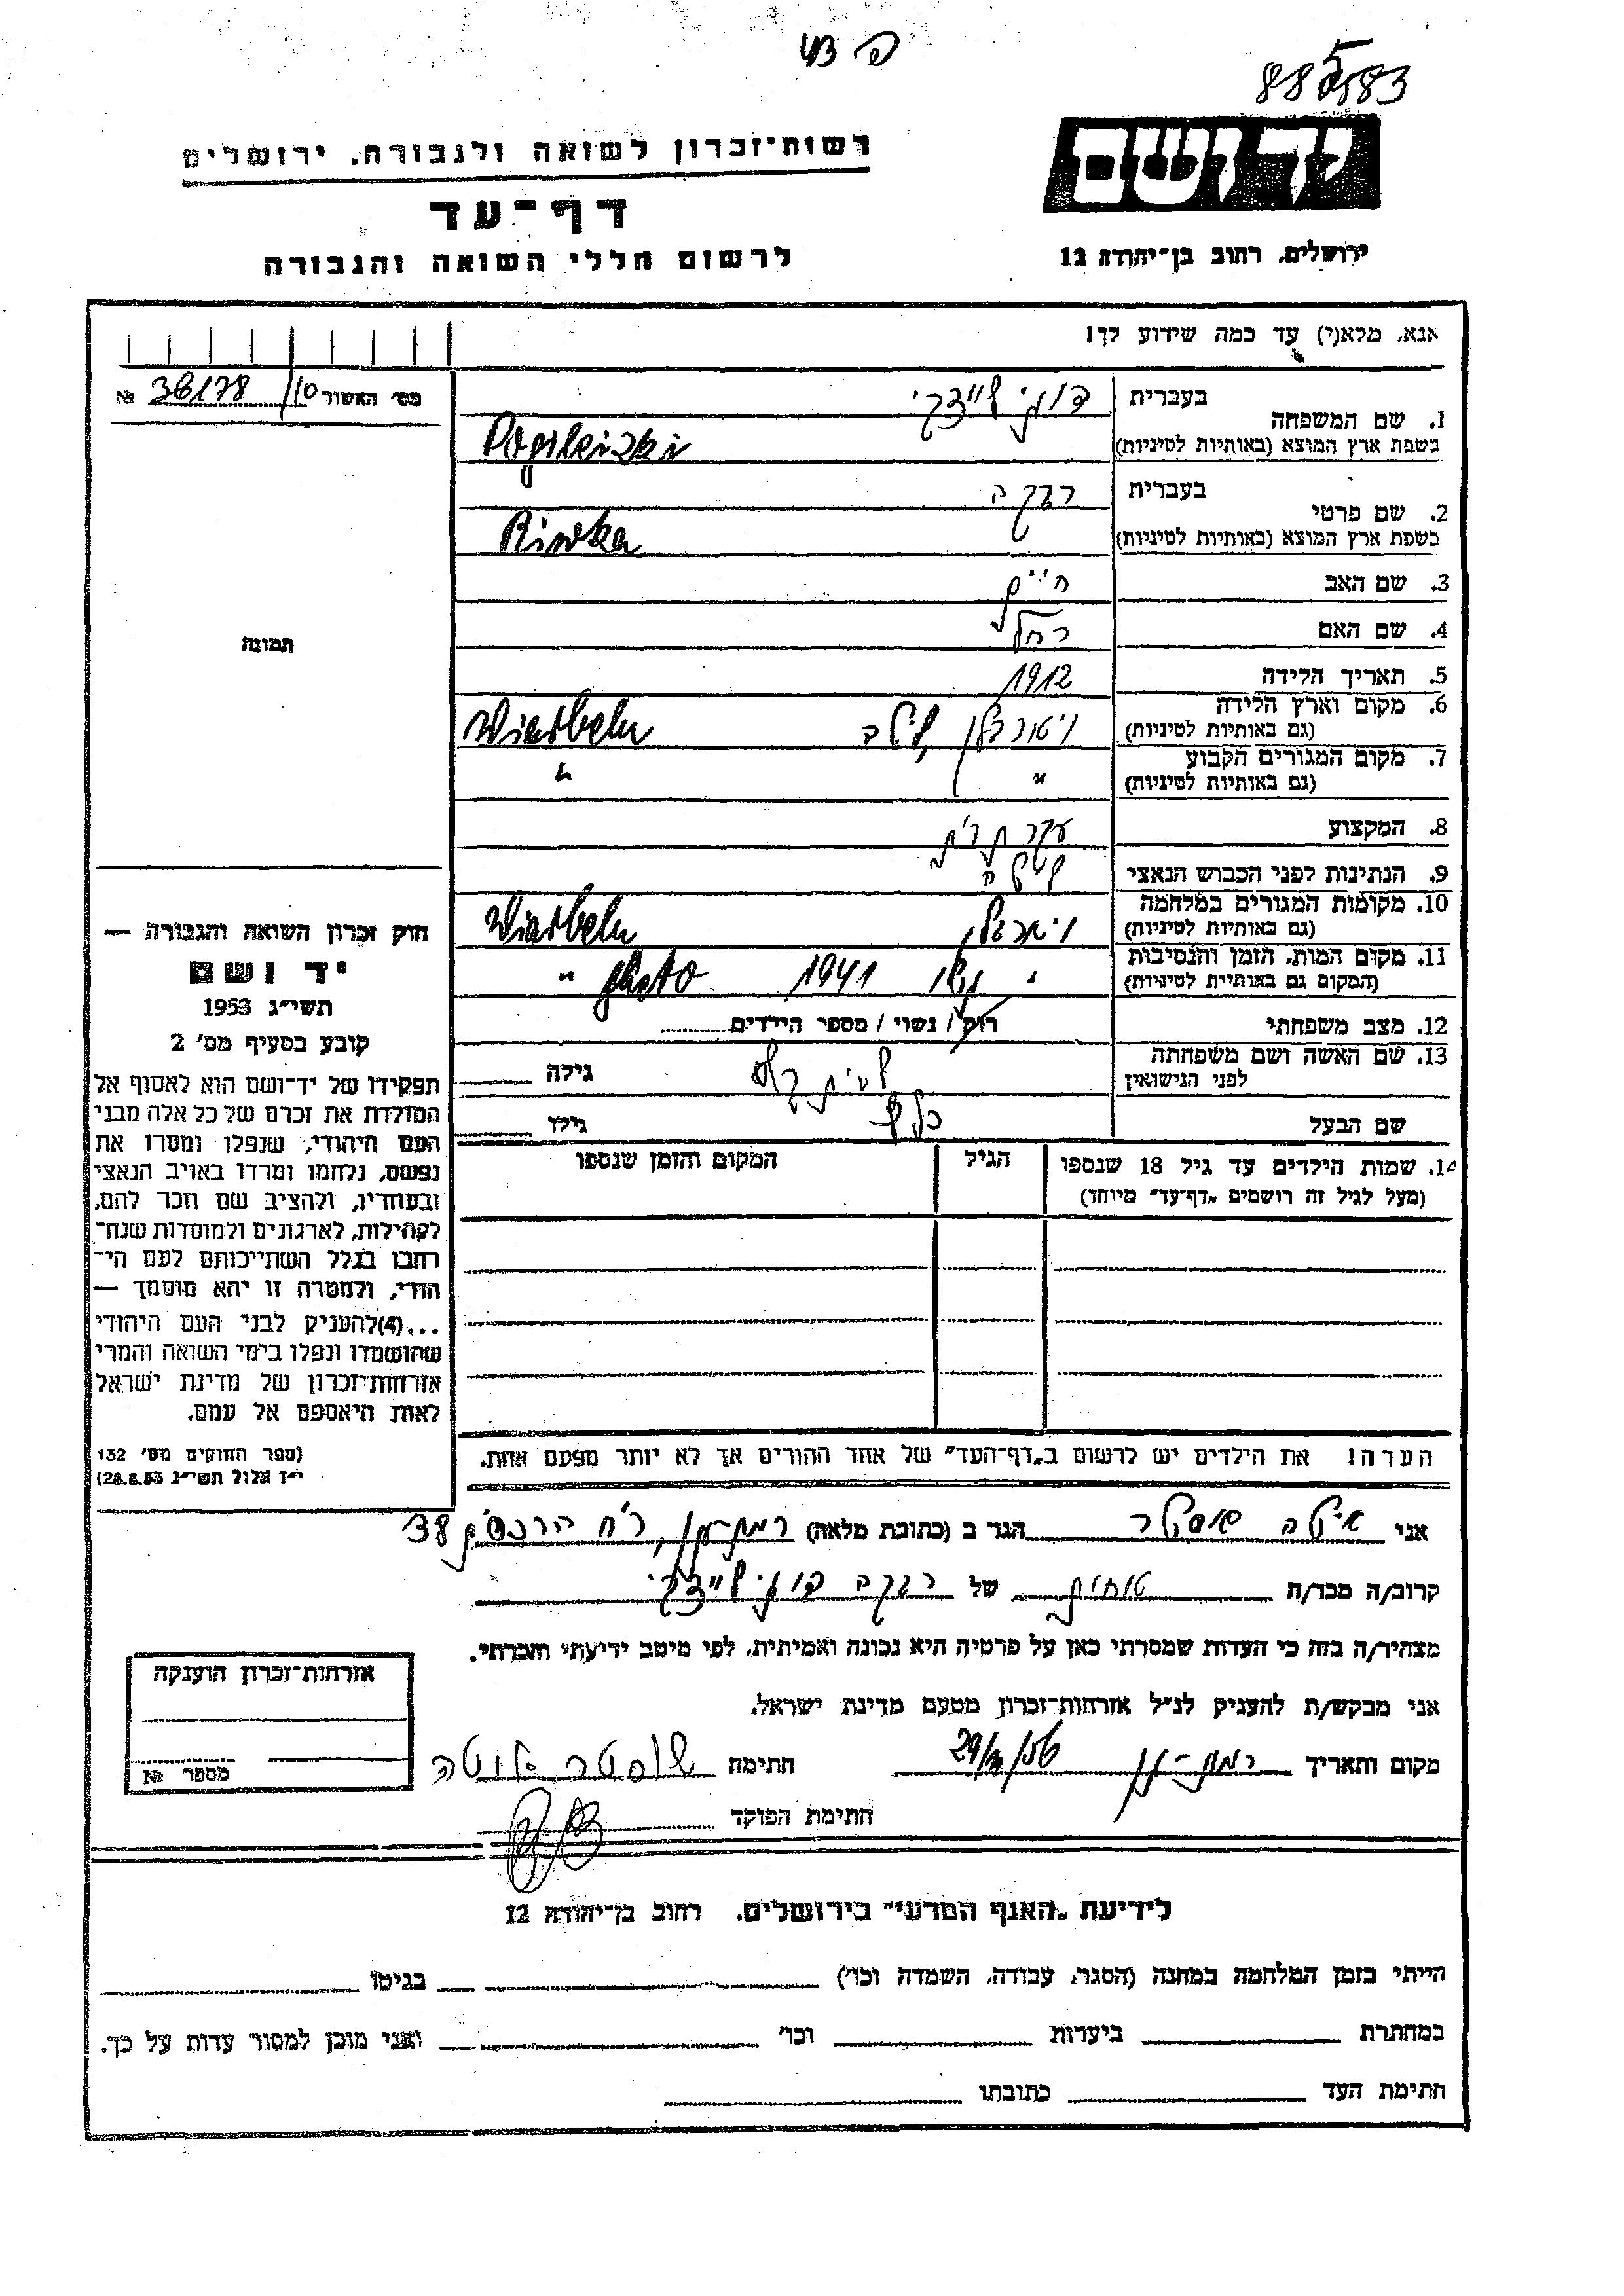 88583
יד ושם
רשות־זכרון לשואה ולגבורה, ירושלים
דף־עד
לרשום חללי השואה והגבורה
ירושלים, רחוב בן־יהודה 12
אנא, מלא(י) עד כמה שידוע לך!
מס׳ האשור 10/ 38178 №
1. שם המשפחה
בעברית
בשפת ארץ המוצא (באותיות לטיניות) Pogileizki
2. שם פרטי
בעברית רבקה
בשפת ארץ המוצא (באותיות לטיניות) Riwka
3. שם האב חיים
4. שם האם רחל
5. תאריך הלידה 1912
6. מקום וארץ הלידה
(גם באותיות לטיניות)
7. מקום המגורים הקבוע
(גם באותיות לטיניות) " "
8. המקצוע עקרת בית
9. הנתינות לפני הכבוש הנאצי
10. מקומות המגורים במלחמה
(גם באותיות לטיניות)
11. מקום המות, הזמן והנסיבות
(המקום גם באותיית לטיניות) " גטו 1941 ghetto "
12. מצב משפחתי רוק / נשוי / מספר הילדים
13. שם האשה ושם משפחתה
לפני הנישואין
גילה
שם הבעל גילו
14. שמות הילדים עד גיל 18 שנספו
(מעל לגיל זה רושמים „דף־עד" מיוחד)
הגיל
המקום והזמן שנספו
הערה! את הילדים יש לרשום ב„דף־העד" של אחד ההורים אך לא יותר מפעם אחת.
תמונה
חוק זכרון השואה והגבורה —
יד ושם
תשי״ג 1953
קובע בסעיף מס׳ 2
תפקידו של יד־ושם הוא לאסוף אל
המולדת את זכרם של כל אלה מבני
העם היהודי, שנפלו ומסרו את
נפשם, נלחמו ומרדו באויב הנאצי
ובעוזריו, ולהציב שם וזכר להם,
לקהילות, לארגונים ולמוסדות שנח־
רחבו בגלל השתייכותם לעם הי־
הודי, ולמטרה זו יהא מוסמך —
...(4)להעניק לבני העם היהודי
שהושמדו ונפלו בימי השואה והמרי
אזרחות־זכרון של מדינת ישראל
לאות היאספם אל עמם.
(ספר החוקים מס׳ 132
י״ז אלול תשי״ג 28.8.53)
אני הגר ב (כתובת מלאה) רמת־גן, 38
קרוב/ה מכר/ה של רבקה
מצהיר/ה בזה כי העדות שמסרתי כאן על פרטיה היא נכונה ואמיתית, לפי מיטב ידיעתי והכרתי.
אני מבקש/ת להעניק לנ״ל אזרחות־זכרון מטעם מדינת ישראל.
מקום ותאריך רמת־גן חתימה
חתימת הפוקד
אזרחות־זכרון הוענקה
מספר №
לידיעת „האגף המדעי" בירושלים, רחוב בן־יהודה 12
הייתי בזמן המלחמה במחנה (הסגר, עבודה, השמדה וכו׳) בגיטו
במחתרת ביערות וכו׳ ואני מוכן למסור עדות על כך.
חתימת העד כתובתו